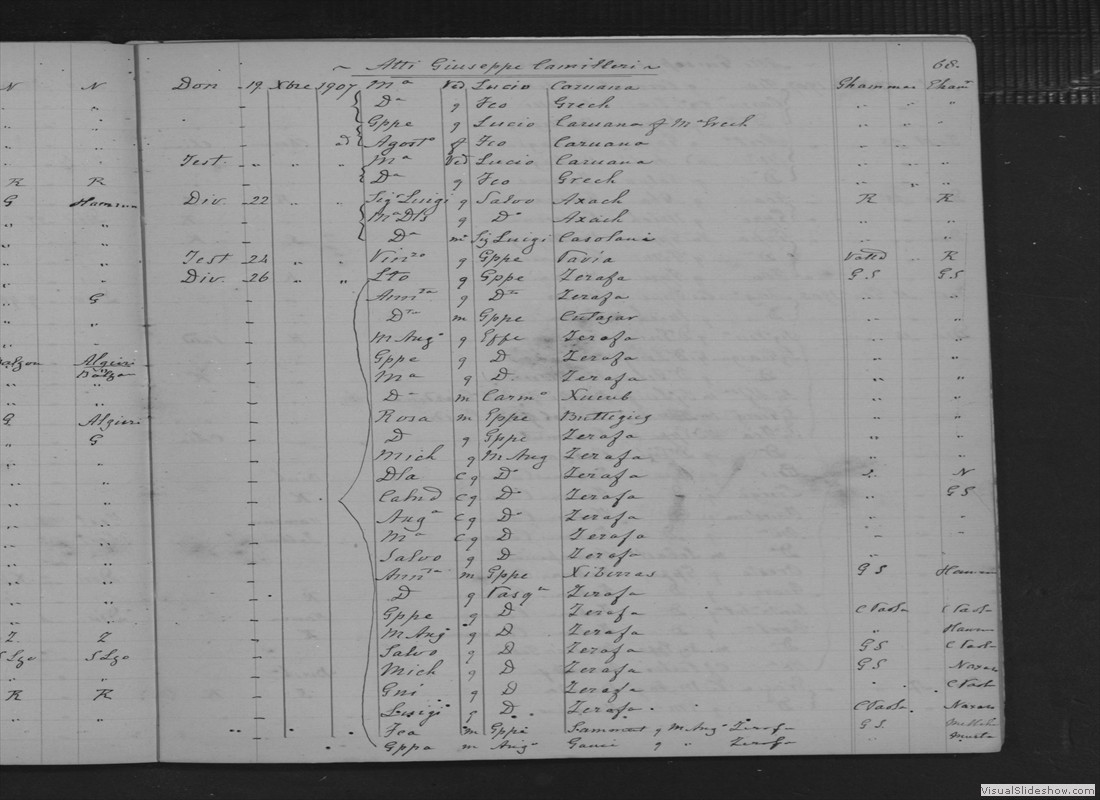 Atti Giuseppe Camilleri 68.
N N Don 19 Xbre 1907 Ma Vd Lucio Caruana Ghammar Gham
" Da g Fco Grech " "
" Gppe g Lucio Caruana & Ma Grech " "
" ad Agosto g Fco Caruana " "
" Test " " " Ma Vd Lucio Caruana " "
R R Da g Fco Grech " "
G Hamrun Div 22 " " Sig Luigi g Salvo Axach R R
" Ma Dla g D Axach " "
" D m Sig Luigi Casolani " "
" Test 24 " " Vinzo g Gppe Tavia Vatta R
" Div 26 " " g Gppe Zerafa GS GS
" G Annta g D Zerafa " "
" D m Gppe Cutajar " "
" M Ang g Gppe Zerafa " "
Algeri Gppe g D Zerafa " "
Ma g D Zerafa " "
" D m Carmo Xucub " "
G Algeri Rosa m Gppe Buttigieg " "
" G D g Gppe Zerafa " "
" Mich g M Ang Zerafa " "
" Dla c g D Zerafa N
" Calcd c g D Zerafa " GS
" Anga c g D Zerafa " "
" Ma c g D Zerafa " "
" Salvo g D Zerafa " "
" Annta m Gppe Xiberras GS Hamr
" D g Pasqa Zerafa " "
" Gppe g D Zerafa CPaola CPaola
Z Z M Ang g D Zerafa " Hamr
S Lzo S Lzo Salvo g D Zerafa GS CPaola
" Mich g D Zerafa GS Naxar
R R Gni g D Zerafa " CPaola
" Luigi g D Zerafa CPaola Naxar
" Fca m Gppe g M Ang Zerafa GS Mellieha
Gppa m Ang Gauci g " Zerafa Musta
VisualSlideshow.com